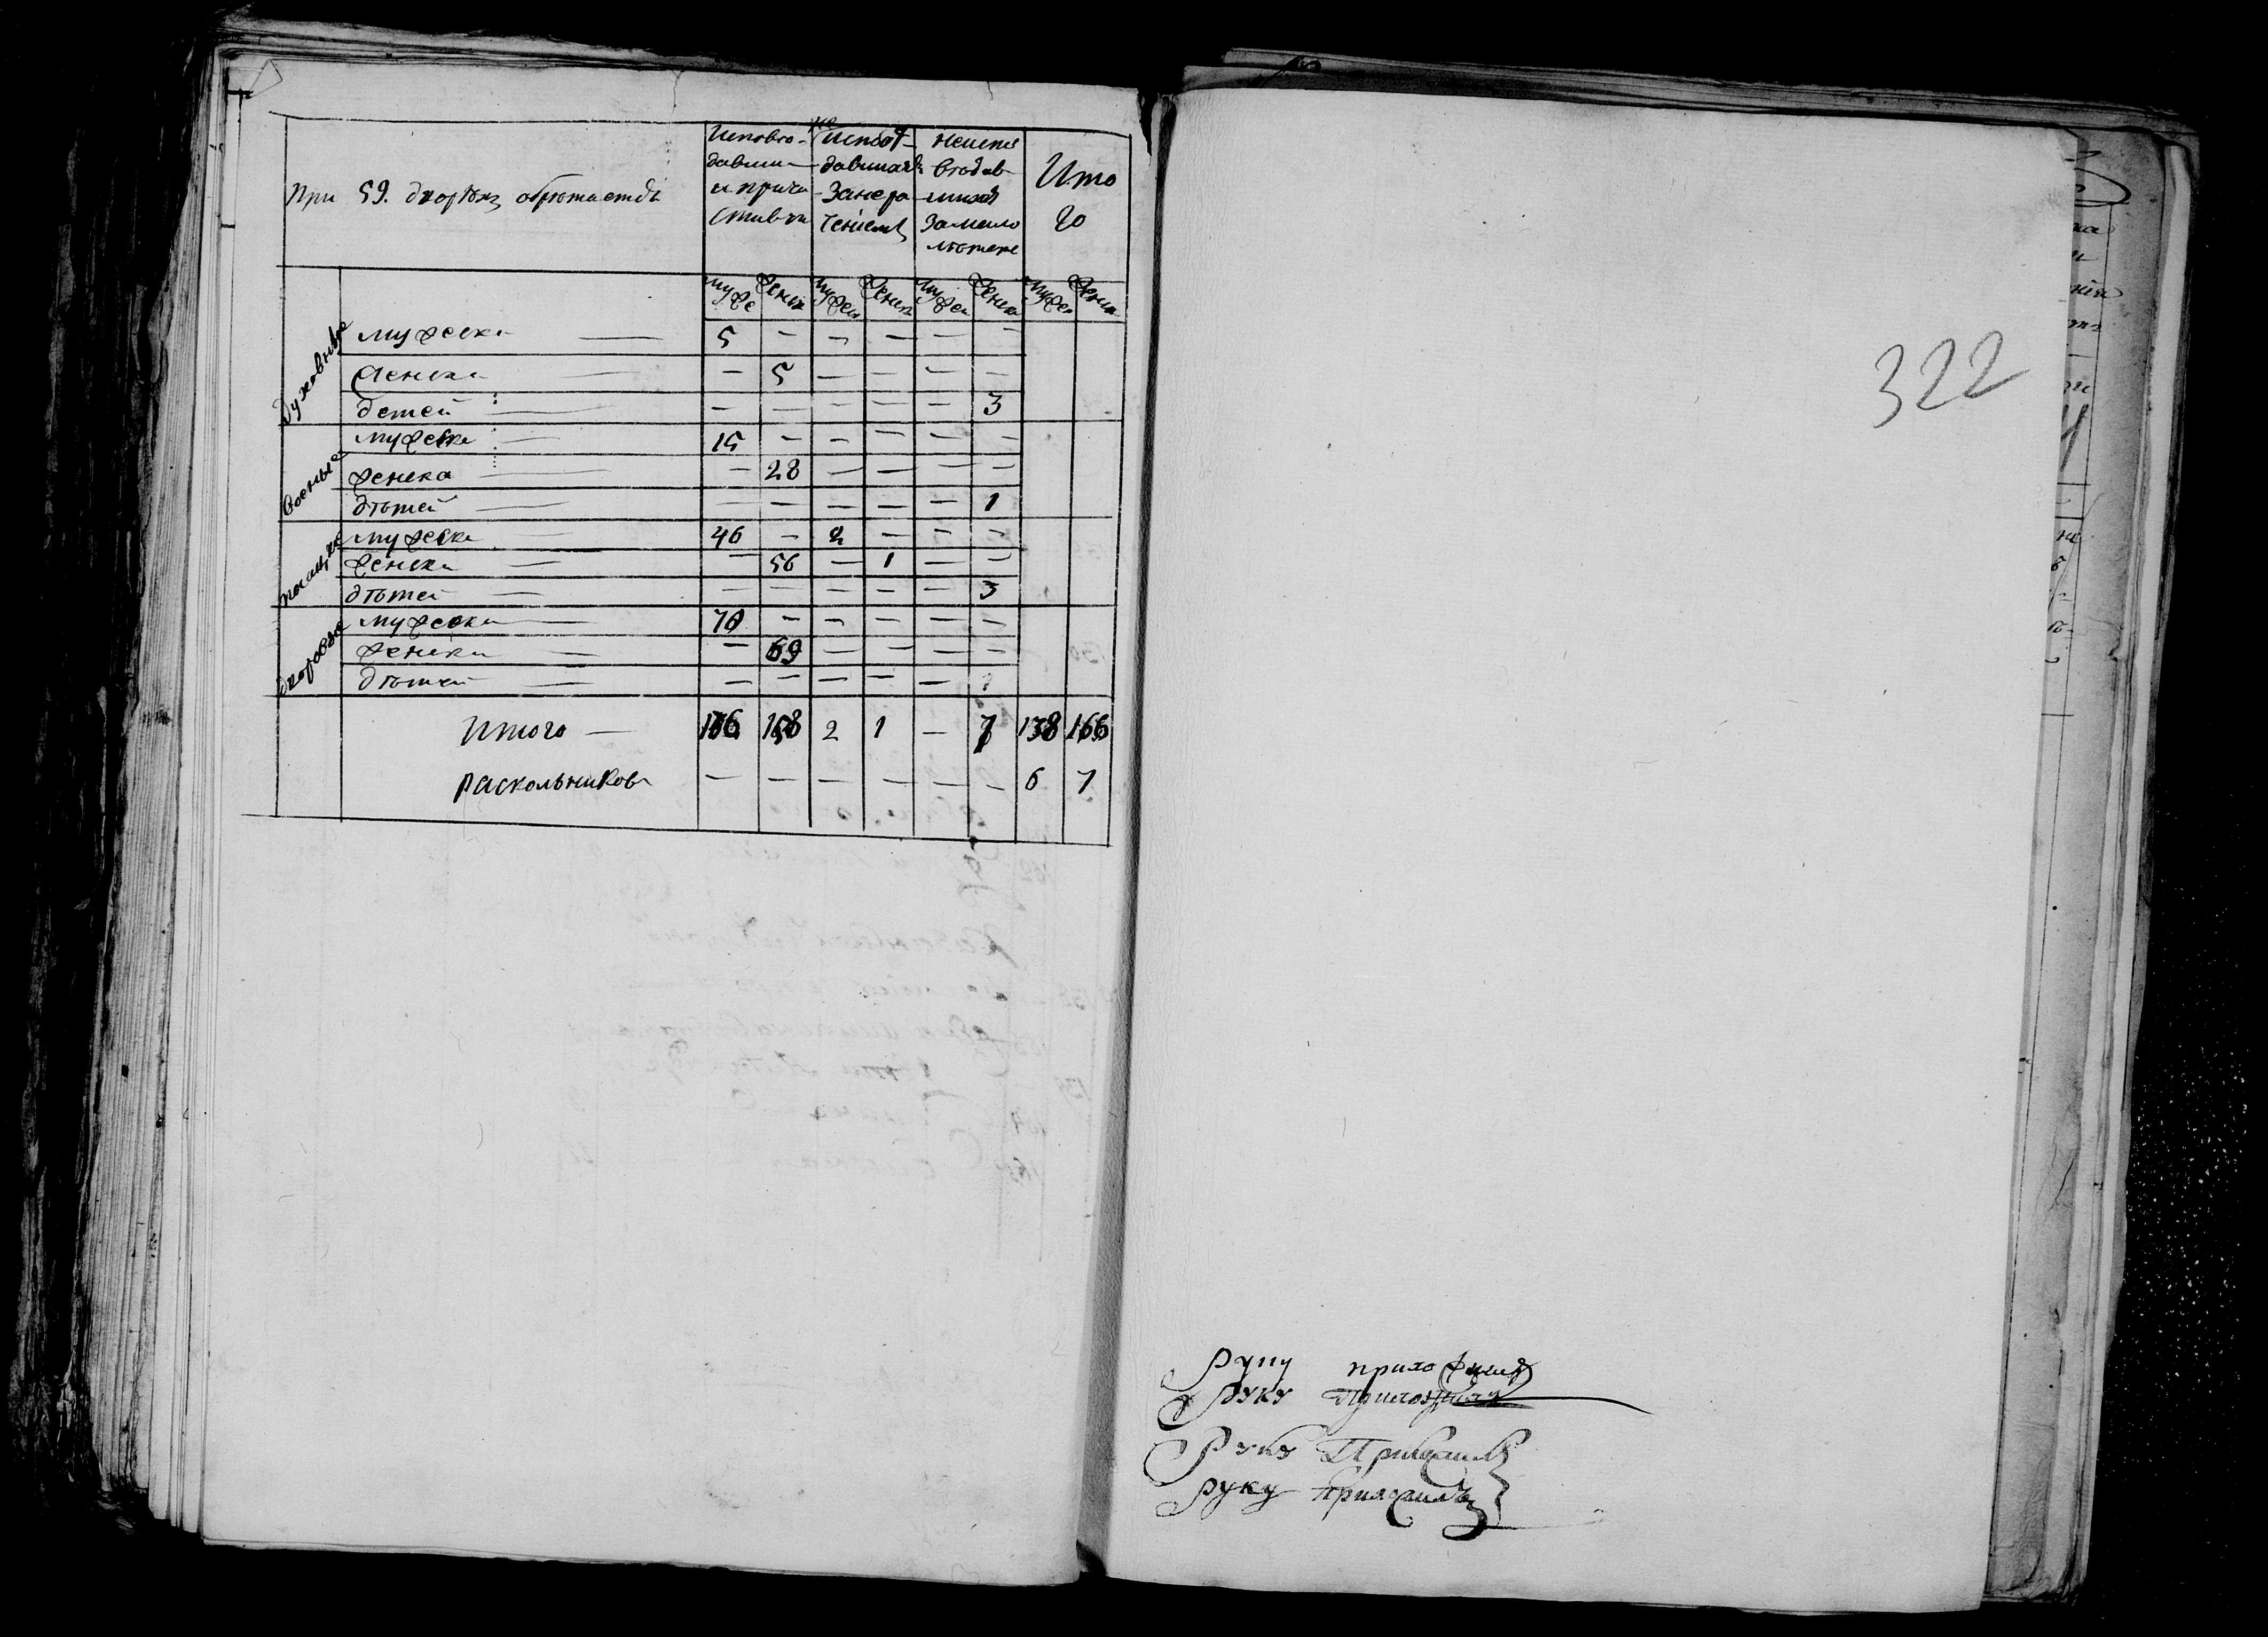 При 59. дворѣхъ обрѣтается
Исповѣдавши и причастивши
не Исповѣдавшихся Занерачениемъ
неисповѣдавшихся Замалолѣтсте
Итого
Муже Женск Муже Женск Муже Женск Муже Женск
Духовные
мужеска — 5 — — — — —
женска — — 5 — — — —
детей — — — — — — 3
военые
мужеска — 15 — — — — —
женска — — 28 — — — —
дѣтей — — — — — — 1
мужеска — 46 — 2 — — —
женска — — 56 — 1 — —
дѣтей — — — — — — 3
дворовые
мужеска — 70 — — — — —
женска — — 69 — — — —
дѣтей — — — — —
Итого — 136 158 2 1 — 7 138 166
раскольниковъ — — — — — — 6 7
322
руку приложилъ
руку Приложилъ
Руку Приложилъ
руку приложилъ